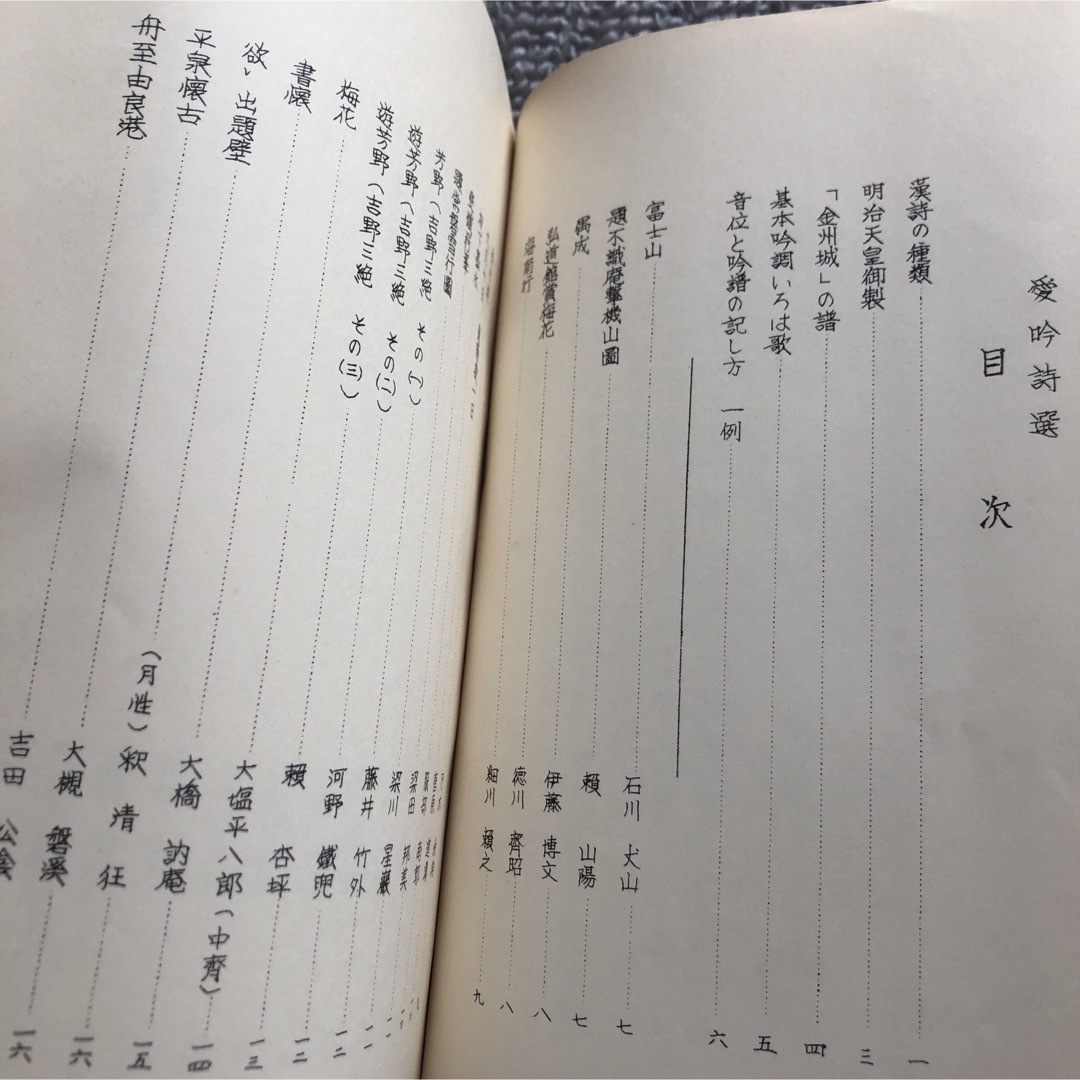 愛吟詩選
目次
漢詩の種類 一
明治天皇御製 三
「金州城」の譜 四
基本吟調いろは歌 五
音位と吟譜の記し方 一例 六
富士山 石川 丈山 七
題不識庵撃機山圖 頼 山陽 七
偶成 伊藤 博文 八
弘道館賞梅花 徳川 齊昭 八
海南行 細川 頼之 九
梁田 邦美
梁川 星巖 一一
芳野(吉野三絶 その(一)) 藤井 竹外 一一
遊芳野(吉野三絶 その(二)) 河野 鐵兜 一二
遊芳野(吉野三絶 その(三)) 頼 杏坪 一二
梅花 大塩平八郎(中齊) 一三
書懐 大橋 訥庵 一四
欲出題壁 (月性)釈 清 狂 一五
平泉懐古 大槻 磐溪 一六
舟至由良港 吉田 松陰 一六